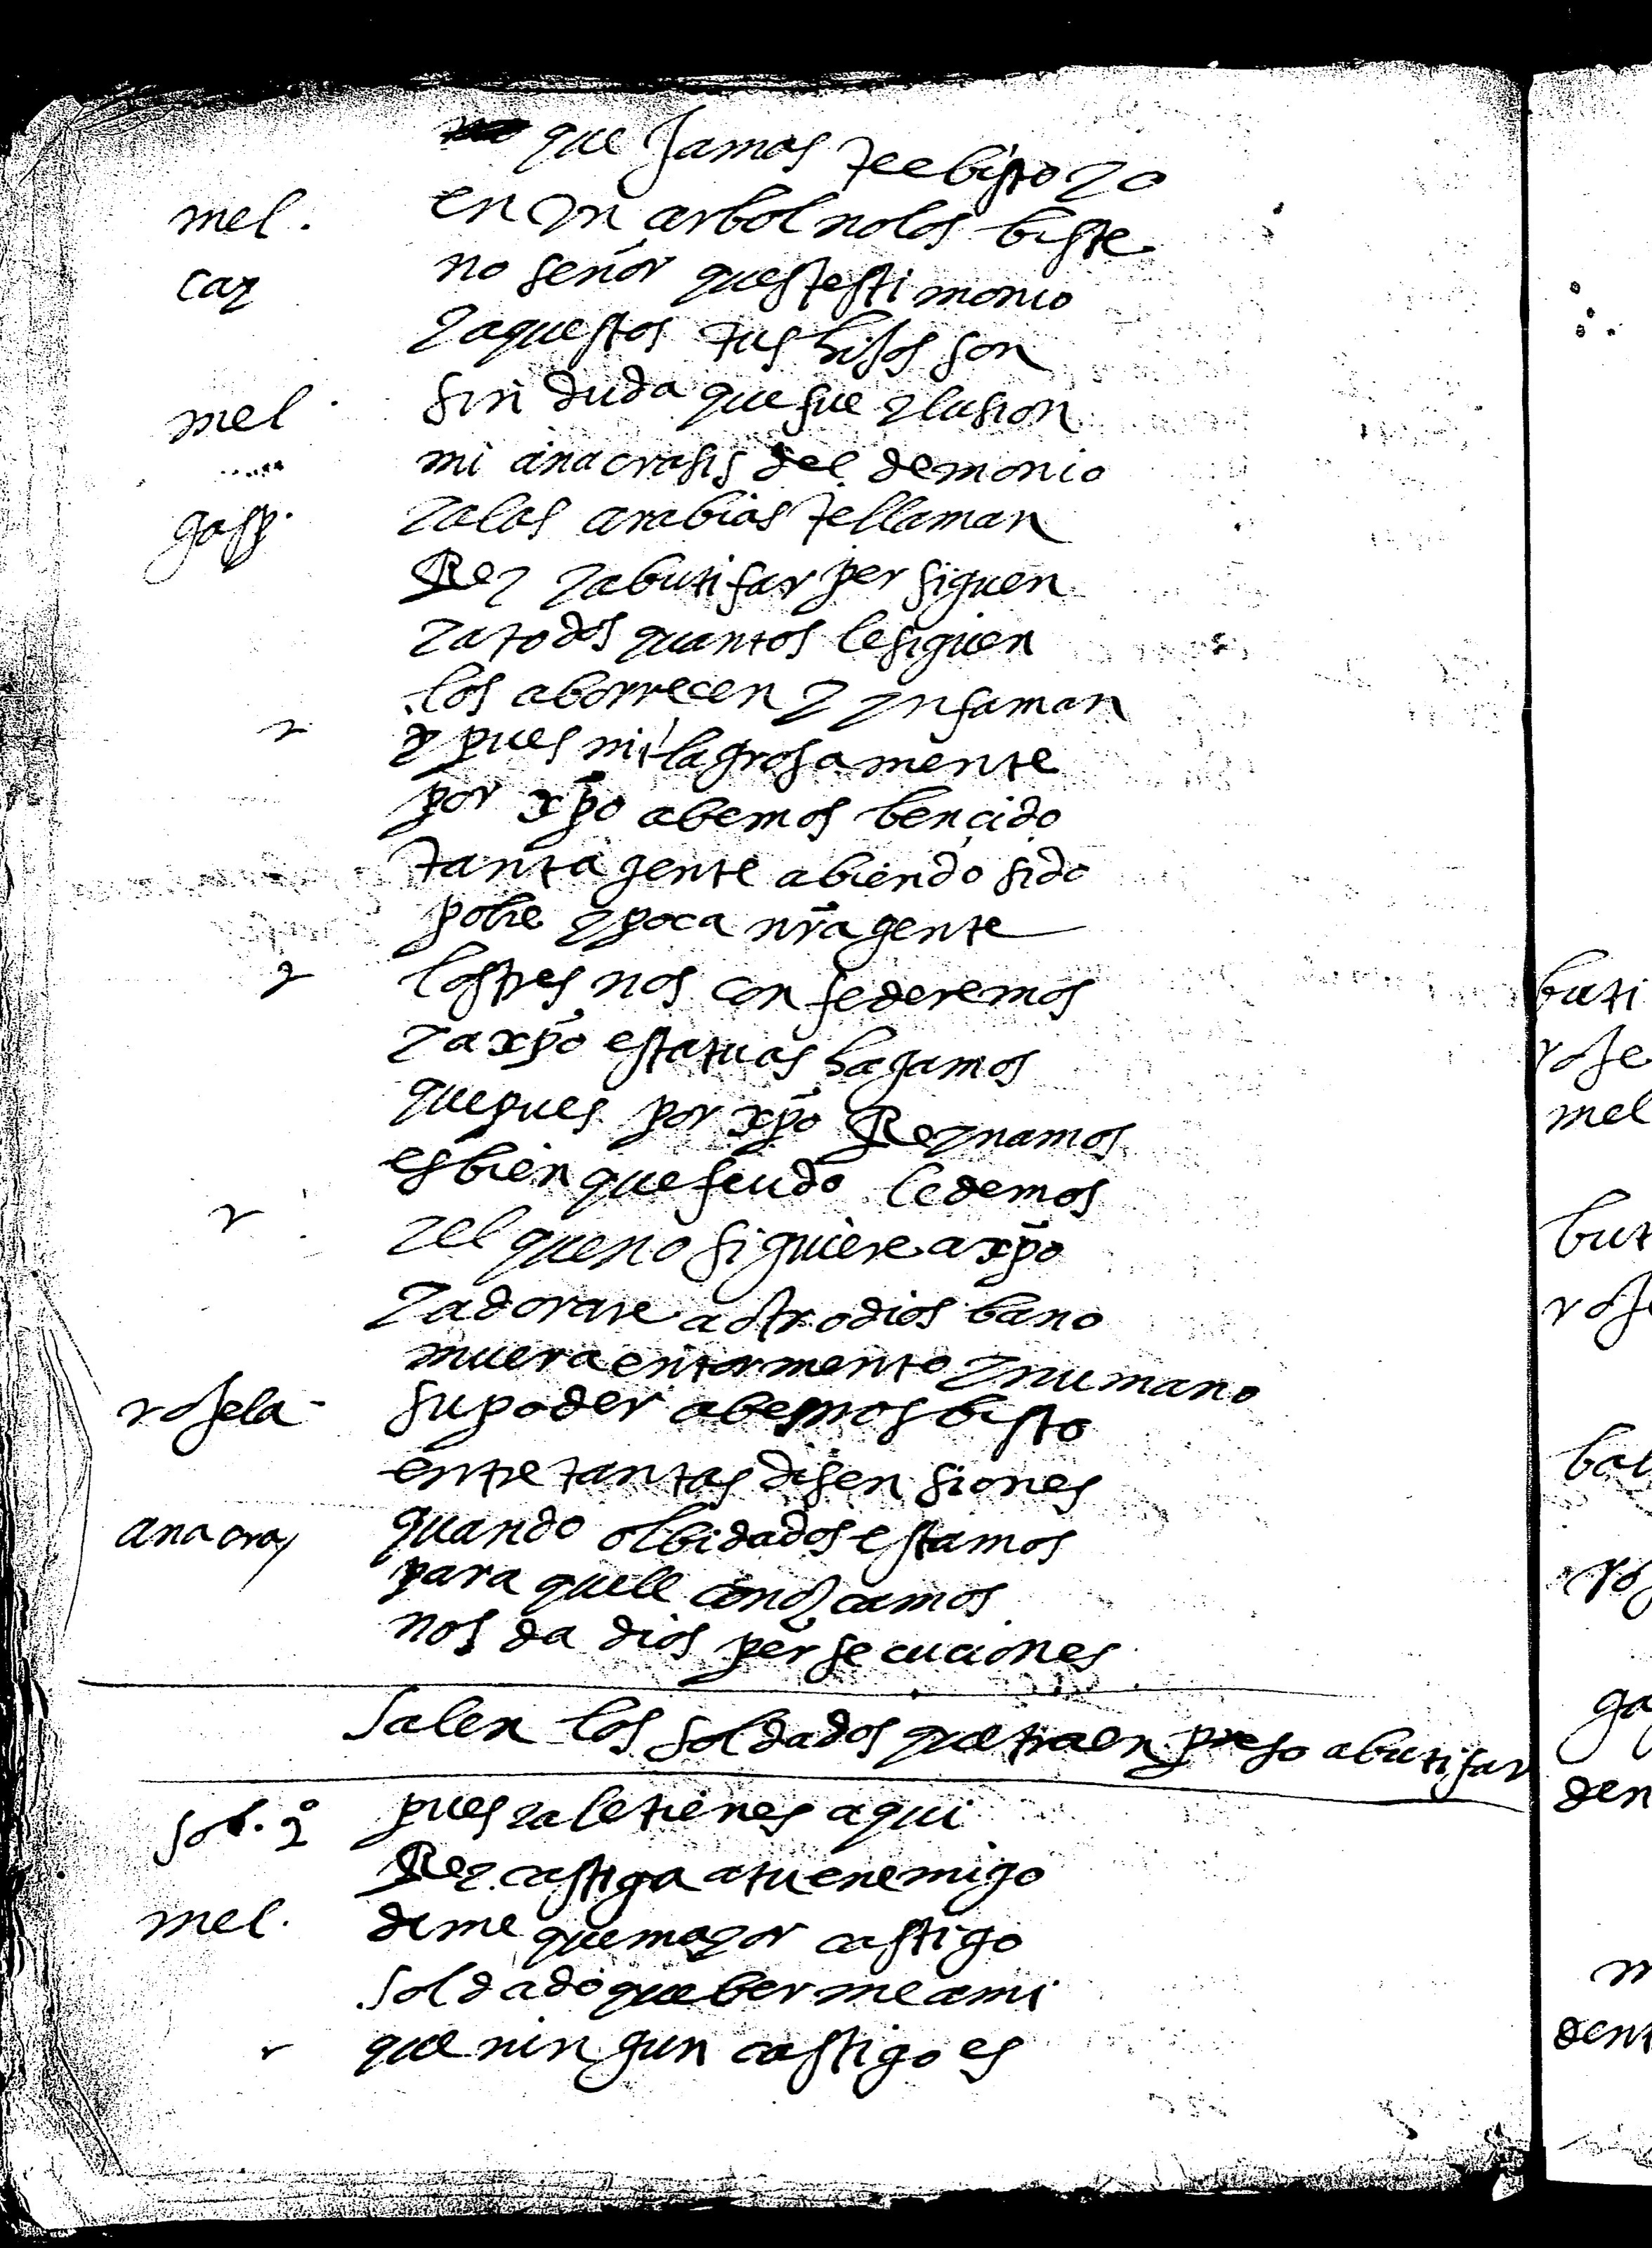 que Jamas tee bisto yo
mel. en yn arbol no los biste
caz no señor ques testimonio
y aquestos tus hijos son
mel sin duda que fue ylusion
mi anacrasis del demonio
gasp. y a las arabias te llaman
Rey y a butifar persiguen
y a todos quantos le siguen
los aborrecen y ynfaman
y pues milagrosamente
por xpo abemos bencido
tanta gente abiendo sido
pobre y poca nra gente
los tres nos confederemos
y a xpo estatuas hagamos
que pues por xpo Reynamos
es bien que feudo le demos
y el que no siguiere a xpo
y adorare a otro dios bano
muera en tormento ynumano
rosela su poder abemos bisto
entre tantas disensiones
anacra quando olbidados estamos
para quell conozcamos
nos da dios persecuciones
Salen los soldados que traen preso a butifar
sol. 2º pues ya le tienes aqui
Rey castiga a tu enemigo
mel. dime que mayor castigo
soldado que berme a mi
que ningun castigo es
buti
rose
mel
but
rose
bal
ros
ga
den
m
dent